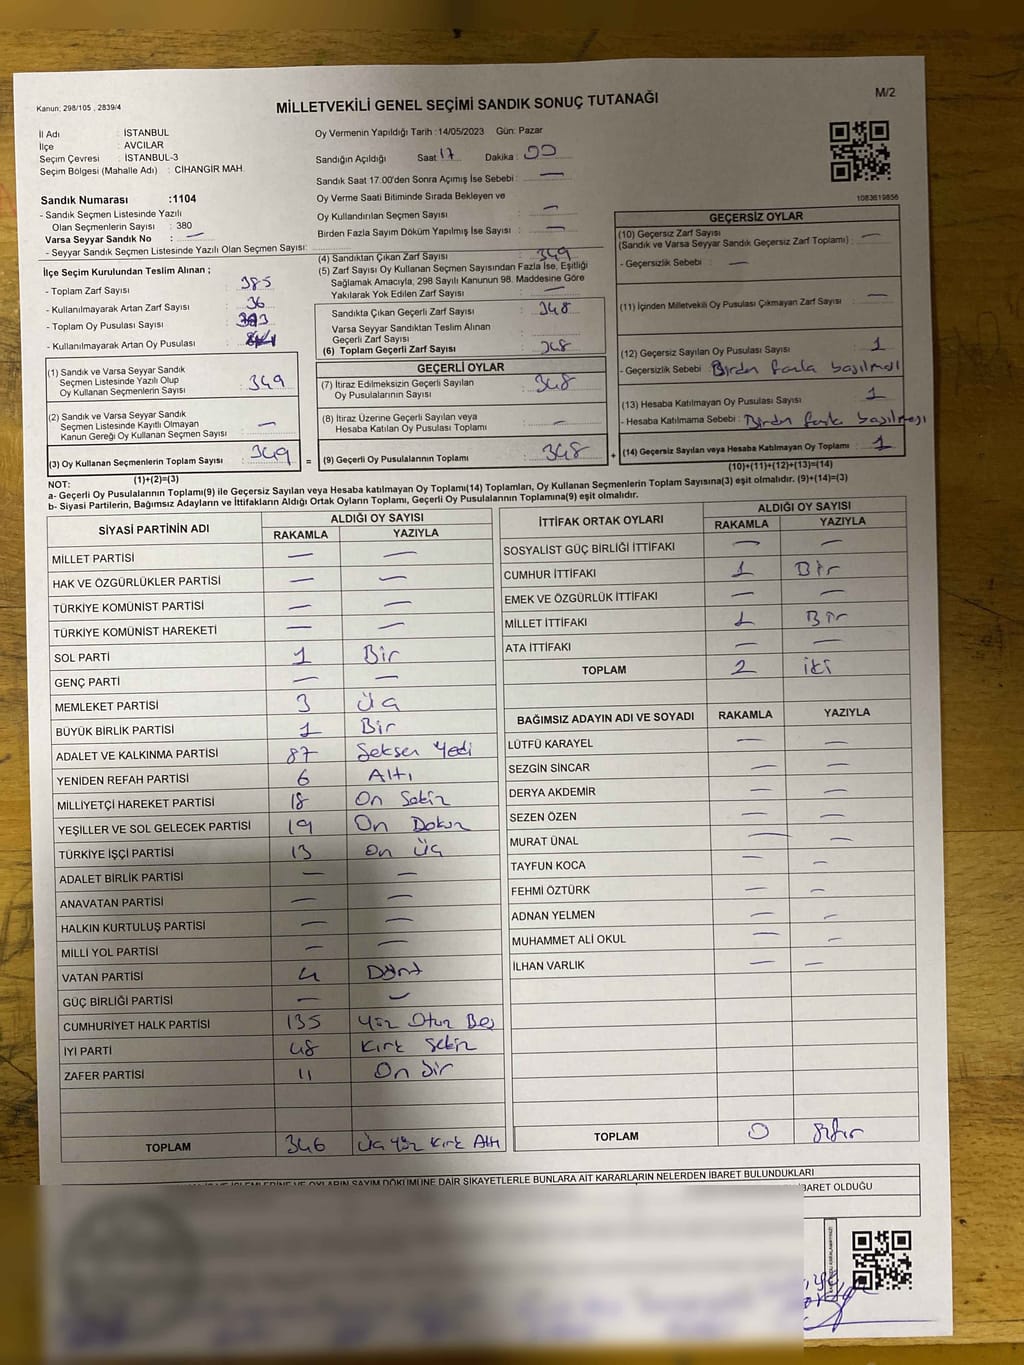 Kanun: 298/105 , 2839/4
MİLLETVEKİLİ GENEL SEÇİMİ SANDIK SONUÇ TUTANAĞI
M/2
İl Adı : İSTANBUL
İlçe : AVCILAR
Seçim Çevresi : İSTANBUL-3
Seçim Bölgesi (Mahalle Adı) : CİHANGİR MAH.
Oy Vermenin Yapıldığı Tarih : 14/05/2023 Gün: Pazar
Sandığın Açıldığı Saat : 17 Dakika : 00
Sandık Saat 17.00'den Sonra Açımış İse Sebebi : —
Oy Verme Saati Bitiminde Sırada Bekleyen ve
Oy Kullandırılan Seçmen Sayısı : —
Birden Fazla Sayım Döküm Yapılmış İse Sayısı : —
1083619856
Sandık Numarası :1104
- Sandık Seçmen Listesinde Yazılı
Olan Seçmenlerin Sayısı : 380
Varsa Seyyar Sandık No : —
- Seyyar Sandık Seçmen Listesinde Yazılı Olan Seçmen Sayısı:
İlçe Seçim Kurulundan Teslim Alınan ;
- Toplam Zarf Sayısı : 385
- Kullanılmayarak Artan Zarf Sayısı : 36
- Toplam Oy Pusulası Sayısı :
- Kullanılmayarak Artan Oy Pusulası :
(1) Sandık ve Varsa Seyyar Sandık
Seçmen Listesinde Yazılı Olup
Oy Kullanan Seçmenlerin Sayısı : 349
(2) Sandık ve Varsa Seyyar Sandık
Seçmen Listesinde Kayıtlı Olmayan
Kanun Gereği Oy Kullanan Seçmen Sayısı : —
(3) Oy Kullanan Seçmenlerin Toplam Sayısı : 349
(1)+(2)=(3)
(4) Sandıktan Çıkan Zarf Sayısı : 349
(5) Zarf Sayısı Oy Kullanan Seçmen Sayısından Fazla İse, Eşitliği
Sağlamak Amacıyla, 298 Sayılı Kanunun 98. Maddesine Göre
Yakılarak Yok Edilen Zarf Sayısı : —
Sandıkta Çıkan Geçerli Zarf Sayısı : 348
Varsa Seyyar Sandıktan Teslim Alınan
Geçerli Zarf Sayısı :
(6) Toplam Geçerli Zarf Sayısı : 348
GEÇERLİ OYLAR
(7) İtiraz Edilmeksizin Geçerli Sayılan
Oy Pusulasının Sayısı : 348
(8) İtiraz Üzerine Geçerli Sayılan veya
Hesaba Katılan Oy Pusulası Toplamı : —
= (9) Geçerli Oy Pusulalarının Toplamı : 348
GEÇERSİZ OYLAR
(10) Geçersiz Zarf Sayısı : —
(Sandık ve Varsa Seyyar Sandık Geçersiz Zarf Toplamı)
- Geçersizlik Sebebi : —
(11) İçinden Milletvekili Oy Pusulası Çıkmayan Zarf Sayısı : —
(12) Geçersiz Sayılan Oy Pusulası Sayısı : 1
- Geçersizlik Sebebi : Birden fazla basılması
(13) Hesaba Katılmayan Oy Pusulası Sayısı : 1
- Hesaba Katılmama Sebebi : Birden fazla basılmayı
+ (14) Geçersiz Sayılan veya Hesaba Katılmayan Oy Toplamı : 1
(10)+(11)+(12)+(13)=(14)
NOT:
a- Geçerli Oy Pusulalarının Toplamı(9) ile Geçersiz Sayılan veya Hesaba katılmayan Oy Toplamı(14) Toplamları, Oy Kullanan Seçmenlerin Toplam Sayısına(3) eşit olmalıdır. (9)+(14)=(3)
b- Siyasi Partilerin, Bağımsız Adayların ve İttifakların Aldığı Ortak Oyların Toplamı, Geçerli Oy Pusulalarının Toplamına(9) eşit olmalıdır.
SİYASİ PARTİNİN ADI ALDIĞI OY SAYISI
RAKAMLA YAZIYLA
MİLLET PARTİSİ — —
HAK VE ÖZGÜRLÜKLER PARTİSİ — —
TÜRKİYE KOMÜNİST PARTİSİ — —
TÜRKİYE KOMÜNİST HAREKETİ — —
SOL PARTİ 1 Bir
GENÇ PARTİ — —
MEMLEKET PARTİSİ 3 Üç
BÜYÜK BİRLİK PARTİSİ 1 Bir
ADALET VE KALKINMA PARTİSİ 87 Seksen Yedi
YENİDEN REFAH PARTİSİ 6 Altı
MİLLİYETÇİ HAREKET PARTİSİ 18 On Sekiz
YEŞİLLER VE SOL GELECEK PARTİSİ 19 On Dokuz
TÜRKİYE İŞÇİ PARTİSİ 13 On Üç
ADALET BİRLİK PARTİSİ — —
ANAVATAN PARTİSİ — —
HALKIN KURTULUŞ PARTİSİ — —
MİLLİ YOL PARTİSİ — —
VATAN PARTİSİ 4 Dört
GÜÇ BİRLİĞİ PARTİSİ — —
CUMHURİYET HALK PARTİSİ 135 Yüz Otuz Beş
İYİ PARTİ 48 Kırk Sekiz
ZAFER PARTİSİ 11 On bir
TOPLAM 346 Üç Yüz Kırk Altı
İTTİFAK ORTAK OYLARI ALDIĞI OY SAYISI
RAKAMLA YAZIYLA
SOSYALİST GÜÇ BİRLİĞİ İTTİFAKI — —
CUMHUR İTTİFAKI 1 Bir
EMEK VE ÖZGÜRLÜK İTTİFAKI — —
MİLLET İTTİFAKI 1 Bir
ATA İTTİFAKI — —
TOPLAM 2 iki
BAĞIMSIZ ADAYIN ADI VE SOYADI RAKAMLA YAZIYLA
LÜTFÜ KARAYEL — —
SEZGİN SİNCAR — —
DERYA AKDEMİR — —
SEZEN ÖZEN — —
MURAT ÜNAL — —
TAYFUN KOCA — —
FEHMİ ÖZTÜRK — —
ADNAN YELMEN — —
MUHAMMET ALİ OKUL — —
İLHAN VARLIK — —
TOPLAM 0 Sıfır
İŞLEMLERİNE VE OYLARIN SAYIM DÖKÜMÜNE DAİR ŞİKAYETLERLE BUNLARA AİT KARARLARIN NELERDEN İBARET BULUNDUKLARI
İBARET OLDUĞU